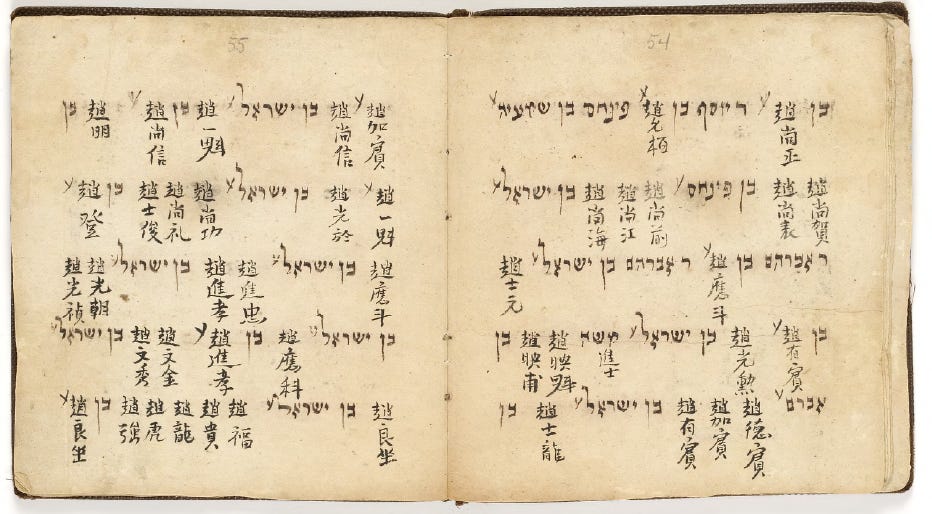 54
בן 趙尚正 ר יוסף בן 趙允栢 פינחס בן ישעיה
趙尚賀 趙尚表 בן פינחס 趙尚前 趙尚江 趙尚海 בן ישראל
ר אברהם בן 趙應斗 ר אברהם בן ישראל 趙士元
בן 趙有賓 趙光勲 בן ישראל 進士 משה 趙映魁 趙映甫 בן
אברם 趙德賓 趙加賓 趙有賓 בן ישראל 趙士龍 בן
55
趙加賓 趙尚信 בן ישראל 趙一魁 בן 趙尚信 趙明 בן
趙一魁 趙光於 בן ישראל 趙尚功 趙尚礼 趙士俊 בן 趙登
趙應斗 בן ישראל 趙進忠 趙進孝 בן ישראל 趙光朝 趙光禎
בן ישראל 趙應科 בן 趙進孝 趙文金 趙文秀 בן ישראל
趙良坐 בן ישראל 趙福 趙貴 趙龍 趙虎 趙強 בן 趙良坐